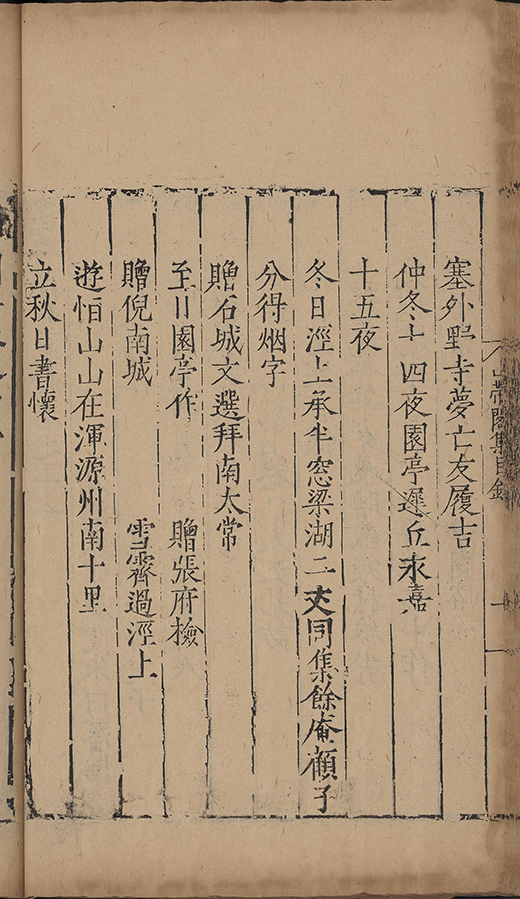 山帶閣集目錄
塞外野寺夢亡友履吉
仲冬十四夜園亭遲丘永嘉
十五夜
冬日涇上承半窓梁湖二丈同集餘庵顧子
分得烟字
贈石城文選拜南太常
至日園亭作 贈張府檢
贈倪南城 雪霽過涇上
遊恒山山在渾源州南十里
立秋日書懷